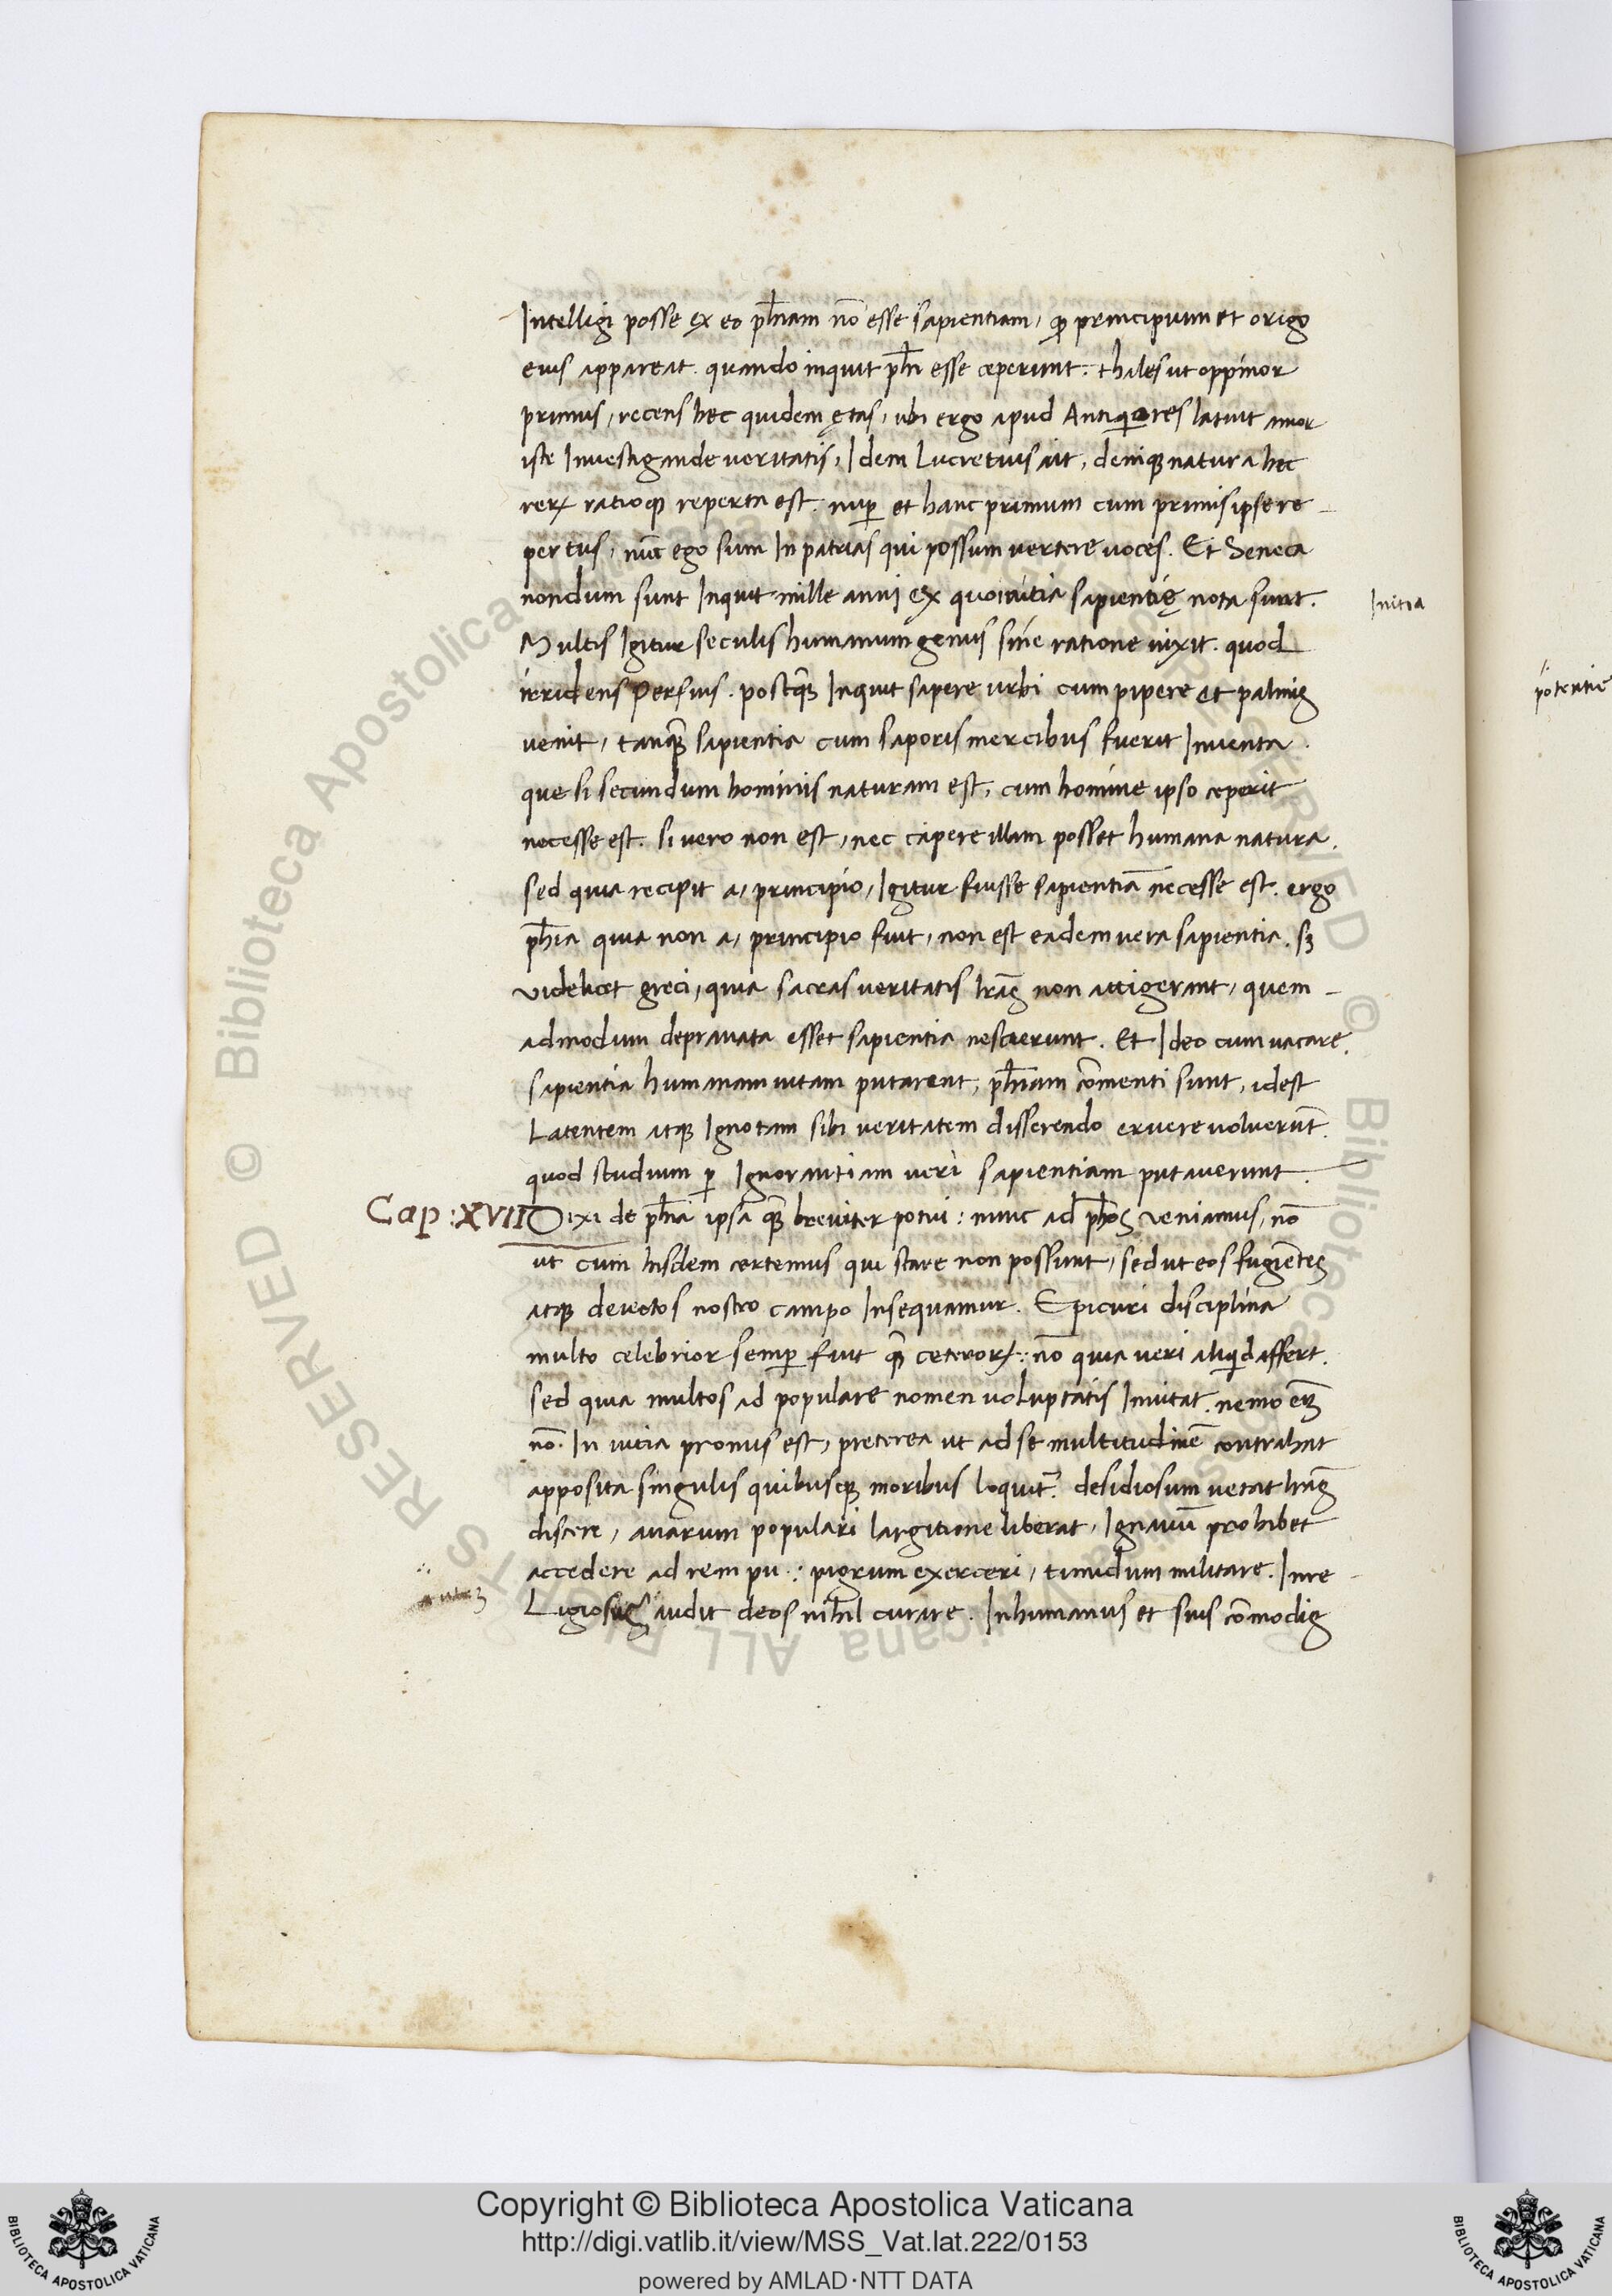 Intelligi posse ex eo ph̄iam nō esse sapientiam, ꝙ principium et origo
eius appareat. quando inquit ph̄i esse ceperunt. thales ut oppinor
primus, recens hec quidem ętas, ubi ergo apud Antiquiores latuit amor
iste Inuestigande ueritatis, Idem Lucretius ait, deniqꝫ natura hec
rerꝝ ratioqꝫ reperta est. nuꝑ et hanc primum cum primis ipse re-
pertus, nūc ego sum In patrias qui possum uertere uoces. Et Seneca
nondum sunt Inquit mille anni ex quo initia sapientię nota sunt.
Initia
Multis Igitur seculis humanum genus sine ratione uixit. quod
irridens Persius. postqꝫ̄ Inquit sapere urbi cum pipere et palmis
uenit, tanqꝫ̄ sapientia cum saporis mercibus fuerit Inuenta.
que si secundum hominis naturam est, cum homine ipso ceperit
necesse est. si uero non est, nec capere illam posset humana natura.
sed quia recipit a, principio, Igitur fuisse sapientiā necesse est. ergo
ph̄ia quia non a, principio fuit, non est eadem uera sapientia. sꝫ
uidelicet greci, quia sacras ueritatis lr̄as non attigerant, quem-
admodum deprauata esset sapientia nescierunt. Et Ideo cum uacare
sapientia humanam uitam putarent, ph̄iam cōmenti sunt, idest
Latentem atqꝫ Ignotam sibi ueritatem disserendo eruere uoluerūt.
quod studium ꝑ Ignorantiam ueri sapientiam putauerunt.
Cap: XVII Dixi de ph̄ia ipsa qꝫ̄ breuiter potui: nunc ad ph̄os ueniamus, nō
ut cum hisdem certemus qui stare non possunt, sed ut eos fugiētes
atqꝫ deiectos nostro campo Insequamur. Epicuri disciplina
multo celebrior semꝑ fuit qꝫ̄ ceterorꝝ: nō quia ueri aliquid affert.
sed quia multos ad populare nomen uoluptatis Inuitat. nemo enꝫ̄
nō. In uitia pronus est, preterea ut ad se multitudinē contrahat
apposita singulis quibusqꝫ moribus loquit᷑. desidiosum uetat lr̄as
discere, auarum populari largitione liberat, Ignauū prohibet
accedere ad rem pu.: pigrum exerceri, timidum militare. Inre-
Ligiosus audit deos nihil curare. Inhumanus et suis cōmodis
potentie
Copyright © Biblioteca Apostolica Vaticana
http://digi.vatlib.it/view/MSS_Vat.lat.222/0153
powered by AMLAD·NTT DATA
BIBLIOTECA APOSTOLICA VATICANA
BIBLIOTECA APOSTOLICA VATICANA